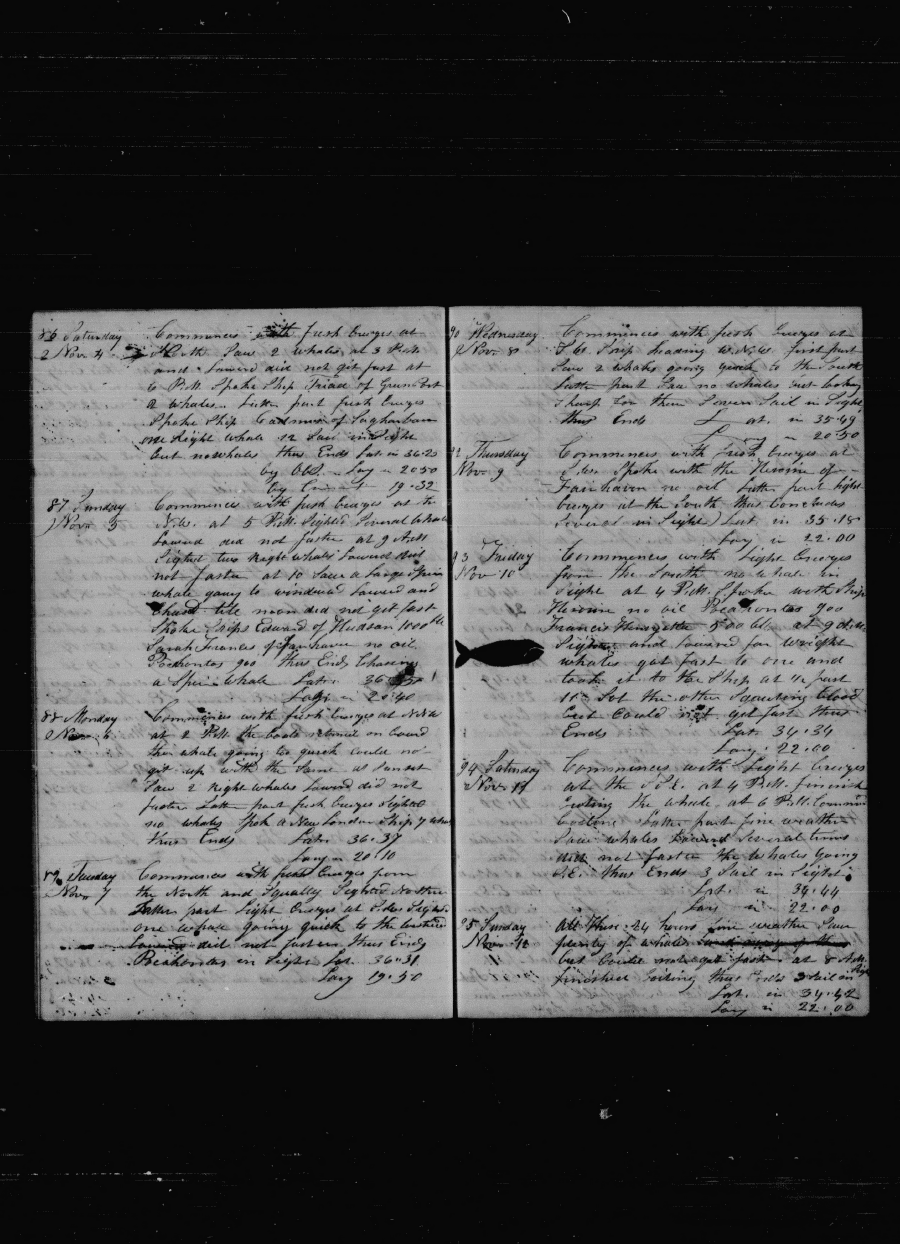 86 Saturday Commences with fresh breezes at
2 Nov 4 North Saw 2 whales at 3 P.M.
and Lowerd did not get fast at
6 P.M. Spoke Ship Triad of Greenport
2 whales Latter part fresh breezes
Spoke Ship Cadmus of Sagharbour
one Right whale 12 Sail in Sight
but no whales thus Ends Lat in 36-25
by Obs. Long 20 50
by 19-32
87 Sunday Commences with fresh breezes at the
Nov 5 N.W. at 5 P.M. Sighted Several whales
Lowerd did not fasten at 9 A.M
Sighted two Right whales Lowerd did
not fasten at 10 Saw a large Sperm
whale going to windward Lowerd and
Chased till noon did not get fast
Spoke Ships Edward of Hudson 1000 bls
Sarah Frances of Fairhaven no oil
Pocahontas 900 thus Ends Chasing
a Sperm whale Lat. 36
Long 20.40
88 Monday Commences with fresh breezes at NNW
Nov 6 at 2 P.M. the boats returnd on board
the whale going to quick could no
get up with the Same at Sunset
Saw 2 Right whales Lowerd did not
fasten Latt part fresh breezes Sighted
no whales Spok a New London Ship 7 whales
thus Ends Lat. 36.37
Long 20.10
89 Tuesday Commences with fresh breezes from
Nov 7 the North and Squally Sighted nothing
Latter part Light breezes at
one whale going quick to the
Lowerd did not fasten thus Ends
Pocahontas in Sight Lat. 36.31
Long 19.50
90 Wednesday Commences with fresh breezes at
Nov 8 S.W. Ship heading W.N.W. first part
Saw 2 whales going quick to the south
Latter part Saw no whales but looking
sharp for them Seven Sail in Sight
thus Ends Lat. in 35.49
Long 20.50
92 Thursday Commences with fresh breezes at
Nov 9 S.W. Spoke with the Heroine of
Fairhaven no oil Latter part light
breezes at the South thus Concludes
Several in Sight Lat. in 35.18
Long in 22.00
93 Friday Commences with Light breezes
Nov 10 from the South no whale in
Sight at 4 P.M. Spoke with Ship
Heroine no oil Pocahontas 900
Francis Henryetta 500 bbl at 9 A.M.
Sighted and Lowerd for wright
whales got fast to one and
took it to the Ship at ½ past
10 Sot the other Spouting blood
but Could not get fast thus
Ends Lat. 34.34
Long. 22.00
94 Saturday Commences with Light breezes
Nov 11 at the S.S.E. at 4 P.M. finished
Cuting the whale at 6 P.M. Commenced
boiling Latter part fine weather
Saw whales Lowerd Several times
did not fasten the whales going
S.E. thus Ends 3 Sail in Sight
Lat. in 34.44
Long in 22.00
95 Sunday All these 24 hours fine weather Saw
Nov 12 plenty of whales
but Could not get fast at 8 A.M.
finished boiling thus Ends 3 Sail in Sight
Lat. in 34.42
Long in 22.00